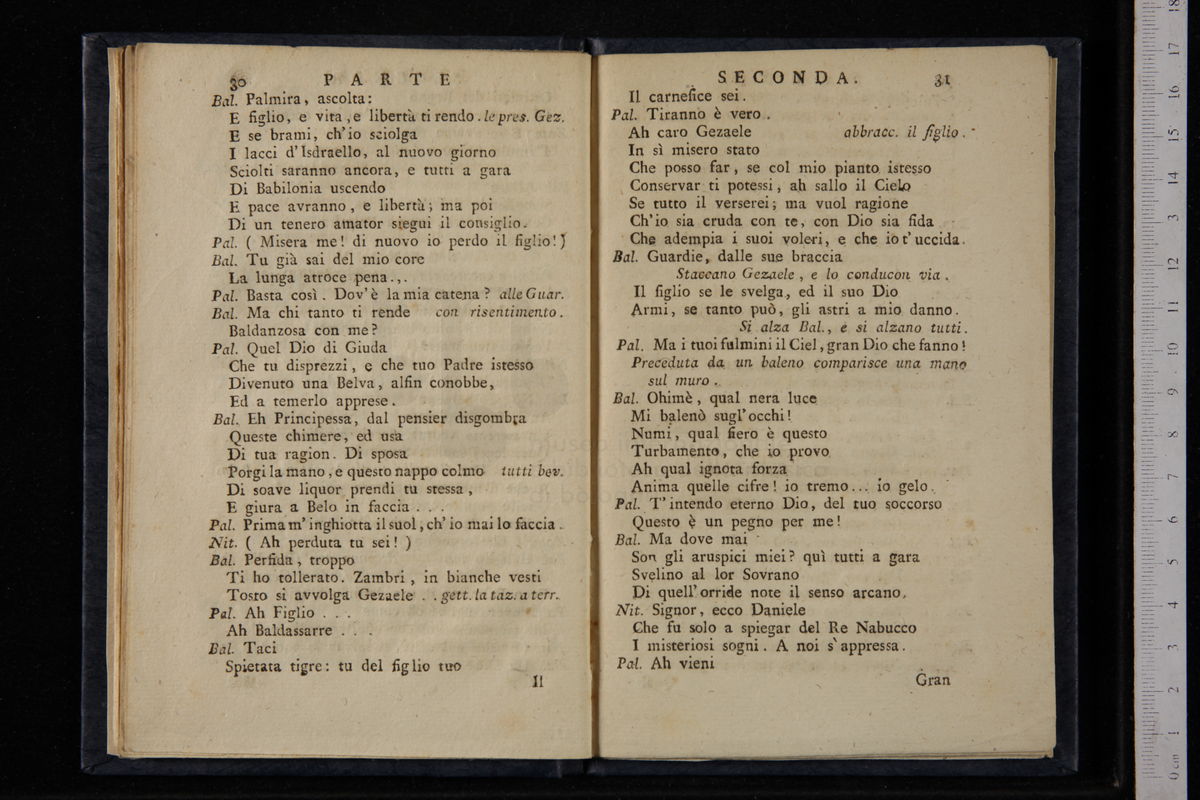 30 PARTE
Bal. Palmira, ascolta:
E figlio, e vita, e libertà ti rendo. le pres. Gez.
E se brami, ch'io sciolga
I lacci d'Isdraello, al nuovo giorno
Sciolti saranno ancora, e tutti a gara
Di Babilonia uscendo
E pace avranno, e libertà; ma poi
Di un tenero amator siegui il consiglio.
Pal. ( Misera me! di nuovo io perdo il figlio!)
Bal. Tu già sai del mio core
La lunga atroce pena...
Pal. Basta così. Dov'è la mia catena? alle Guar.
Bal. Ma chi tanto ti rende con risentimento.
Baldanzosa con me?
Pal. Quel Dio di Giuda
Che tu disprezzi, e che tuo Padre istesso
Divenuto una Belva, alfin conobbe,
Ed a temerlo apprese.
Bal. Eh Principessa, dal pensier disgombra
Queste chimere, ed usa
Di tua ragion. Di sposa
Porgi la mano, e questo nappo colmo tutti bev.
Di soave liquor prendi tu stessa,
E giura a Belo in faccia . . .
Pal. Prima m'inghiotta il suol, ch'io mai lo faccia.
Nit. ( Ah perduta tu sei! )
Bal. Perfida, troppo
Ti ho tollerato. Zambri, in bianche vesti
Tosto si avvolga Gezaele . . gett. la taz. a terr.
Pal. Ah Figlio . . .
Ah Baldassarre . . .
Bal. Taci
Spietata tigre: tu del figlio tuo
Il
SECONDA. 31
Il carnefice sei.
Pal. Tiranno è vero.
Ah caro Gezaele abbracc. il figlio.
In sì misero stato
Che posso far, se col mio pianto istesso
Conservar ti potessi, ah sallo il Cielo
Se tutto il verserei; ma vuol ragione
Ch'io sia cruda con te, con Dio sia fida
Che adempia i suoi voleri, e che io t'uccida.
Bal. Guardie, dalle sue braccia
Staccano Gezaele, e lo conducon via.
Il figlio se le svelga, ed il suo Dio
Armi, se tanto può, gli astri a mio danno.
Si alza Bal., e si alzano tutti.
Pal. Ma i tuoi fulmini il Ciel, gran Dio che fanno!
Preceduta da un baleno comparisce una mano
sul muro.
Bal. Ohimè, qual nera luce
Mi balenò sugl'occhi!
Numi, qual fiero è questo
Turbamento, che io provo
Ah qual ignota forza
Anima quelle cifre! io tremo... io gelo.
Pal. T'intendo eterno Dio, del tuo soccorso
Questo è un pegno per me!
Bal. Ma dove mai
Son gli aruspici miei? quì tutti a gara
Svelino al lor Sovrano
Di quell'orride note il senso arcano.
Nit. Signor, ecco Daniele
Che fu solo a spiegar del Re Nabucco
I misteriosi sogni. A noi s'appressa.
Pal. Ah vieni
Gran
0 cm 1 2 3 4 5 6 7 8 9 10 11 12 13 14 15 16 17 18